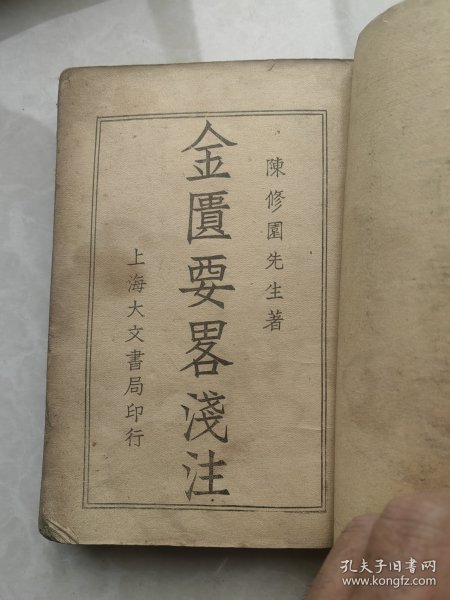 陳修園先生著
金匱要畧淺注
上海大文書局印行
孔夫子旧书网
www.kongfz.com